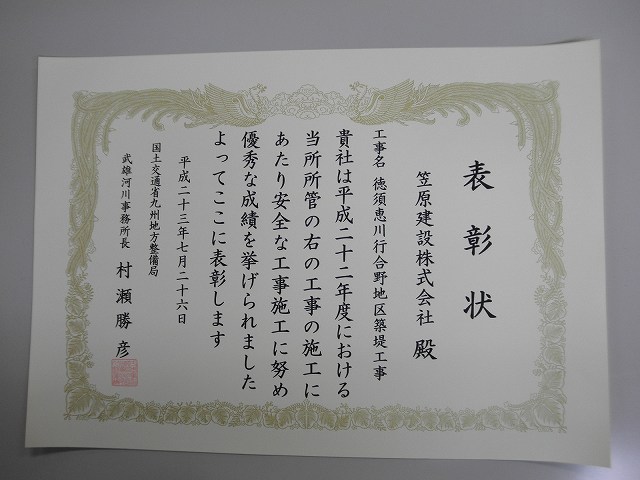 表彰状
笠原建設株式会社 殿
工事名 徳須恵川行合野地区築堤工事
貴社は平成二十二年度における
当所所管の右の工事の施工に
あたり安全な工事施工に努め
優秀な成績を挙げられました
よってここに表彰します
平成二十三年七月二十六日
国土交通省九州地方整備局
武雄河川事務所長 村瀬勝彦